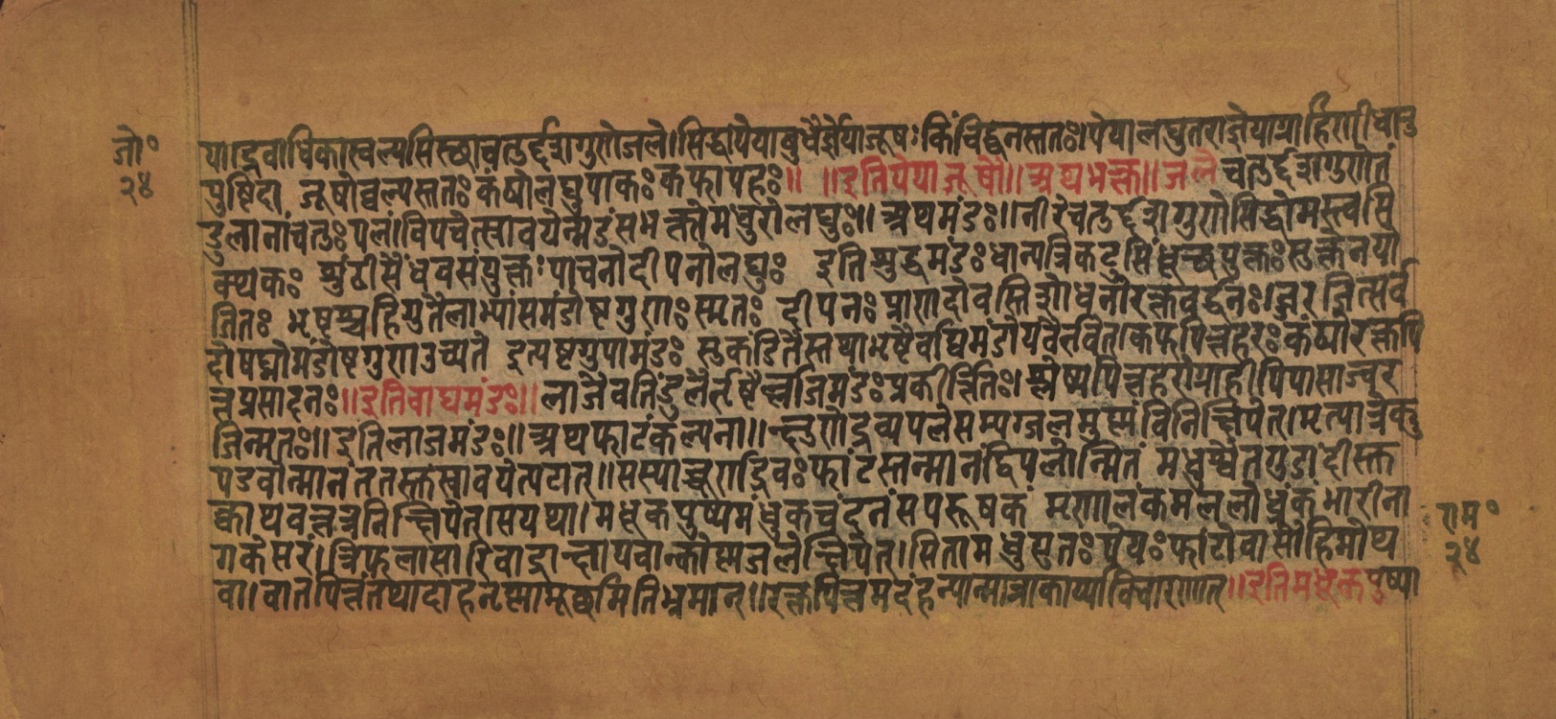 जो॰
२४
या।द्रवाधिकास्वल्पसिस्छाचतुर्द्दशगुणेजले।सिद्धापेयाबुधैर्ज्ञेयाजूषःकिंचिद्घनस्ततः।पेयालघुतराज्ञेयाग्राहिणीधातु
पुष्टिदा जूषोबल्पस्ततःकंष्योलघुपाकःकफापहः॥ ॥इतिपेयाजूषौ॥अथभक्त॥जले चतुर्द्दशगुणेतं
डुलानांचतुःपलं।विपचेत्स्रावयेन्मंडंसभक्तोमधुरोलघुः॥अथमंडः॥नीरेचतुर्द्दशगुणेसिद्धोमस्त्वसि
क्थकः शुंठीसैंधवसंयुक्तःपाचनोदीपनोलघुः इतिशुद्धमंडःधान्यत्रिकटुसिंधूत्थयुक्तः
तितः भृष्टश्चहिंगुतैलाभ्यांसमंडोष्टगुणःस्मृतः दीपनःप्राणदोवस्तिशोधनोरक्तवर्द्धनः।ज्वरजित्सर्व
दोषघ्नोमंडोष्टगुणउच्यते इत्यष्टगुणमंडः सुकंडितैस्तथाभृष्टैर्वाट्यमंडोयवैर्भवेत।कफपित्तहरःकंठ्योरक्तपि
त्तप्रसादनः॥इतिवाट्यमंडः॥लाजैर्वातंडुलैर्भृष्टैर्लाजमंडःप्रकीर्त्तितः।श्लेष्मपित्तहरोग्राहीपिपासाज्वर
जिन्मतः॥इतिलाजमंडः॥अथफांटकल्पना॥क्षुण्णेद्रव्यपलेसम्यग्जलमुष्णंविनिक्षिपेत्।मृत्पात्रेकु
डवोन्मानंततस्तुस्रावयेत्पटात्॥सस्याच्चूर्णद्रवःफांटस्तन्मानंद्विपलोन्मितं मधुश्वेतगुडादींस्तु
क्वाथवत्तत्रनिक्षिपेत्।सयथा।मधूकपुष्पंमधुकंचंदनंसपरूषकं मृणालंकमलंलोध्रं
गकेसरं।त्रिफलासारिवाद्राक्षायवान्कोष्मजलेक्षिपेत्।सितामधुयुतःपेयःफांटोवासौहिमोथ
वा।वातपित्तंतथादाहंतृष्णामूर्छामितिभ्रमान्॥रक्तपित्तमदंहन्यान्मात्राकार्याविचारणात्॥इतिमधूकपुष्पा
राम॰
२४